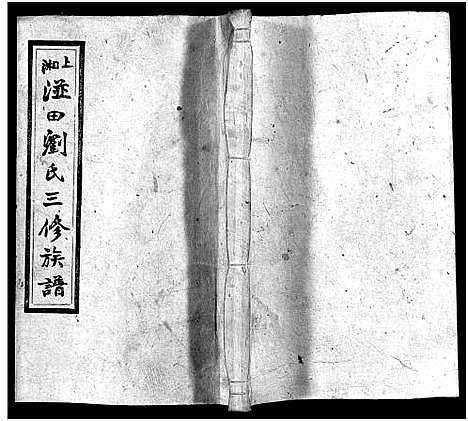 上湘
湴田劉氏三修族譜